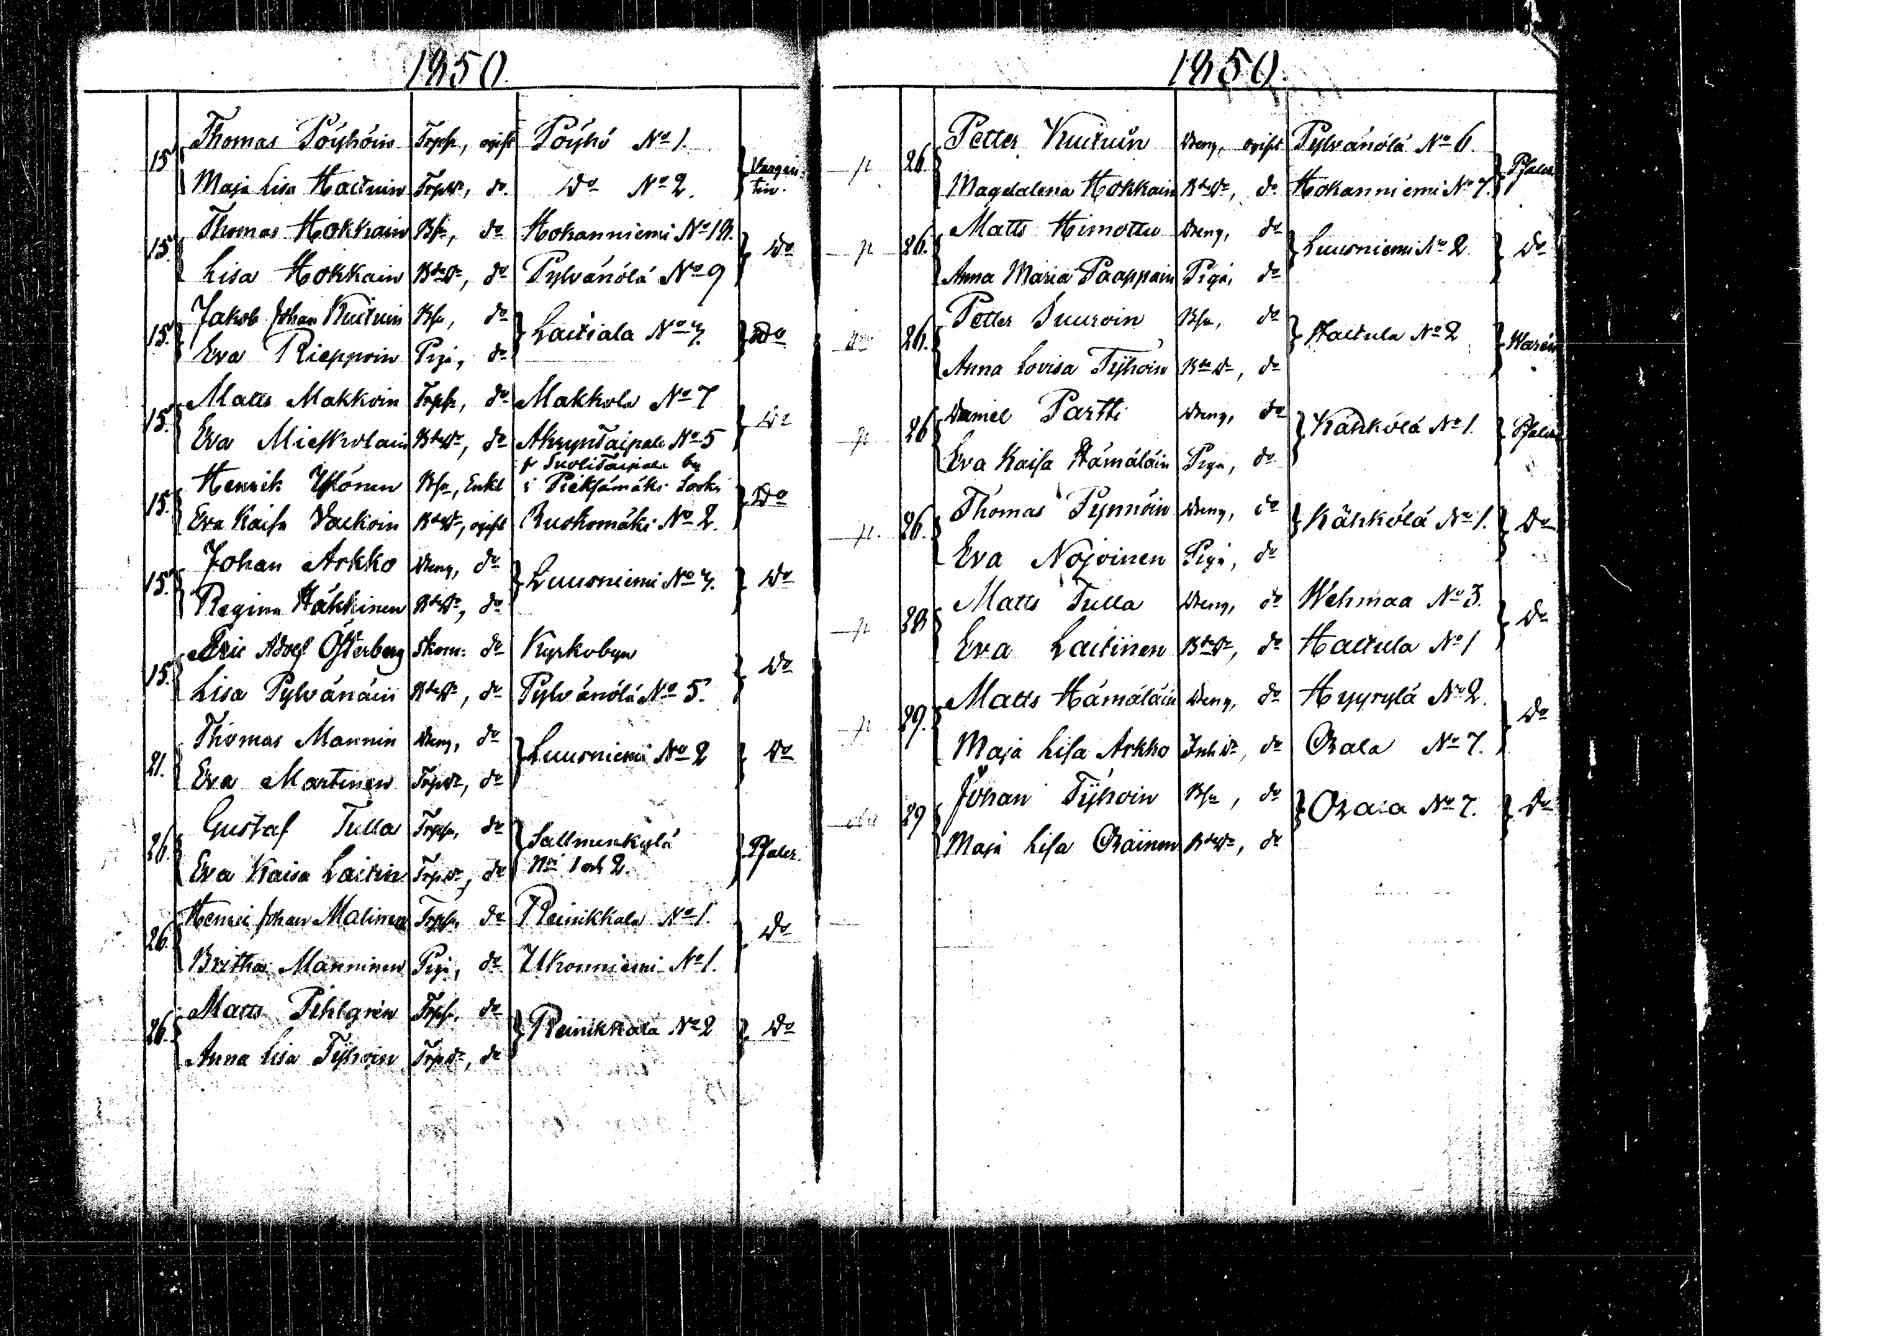 1850.
15 Thomas Pöyhöin Torpr, ogift Pöyhö No 1. Vargen-
Maja Lisa Hactuin Torpdr, do. Do No 2. tin.
15. Thomas Hokkain Bſn, do Hokanniemi No 12. Do
Lisa Hokkain BdeDr, do Pylvänälä No 9
15. Jakob Johan Kuituin Bſn, do Laitiala No 7. Do
Eva Rieppoin Piga, do
15. Matts Makkoin Torpr, do Makkola No 7 Do
Eva Mieſkolain BdeDr, do No 5
15. Henrik Ylönen Bſn, Enkl i Piekſämäki Sockn Do
Eva Kaiſa BdeDr, ogift Ruokomäki No 2.
15. Johan Arkko Dreng, do Luusniemi No 7. Do
Regina Häkkinen BdeDr, do
15. Eric Adolf Öſterberg Skom. do Kyrkobyn Do
Lisa Pylvänäin BdeDr, do Pylvänälä No 5.
21. Thomas Mannin Dreng, do Luusniemi No 2 Do
Eva Martinen Torpdr, do
26. Gustaf Tulla Torpr, do Sallmenkylä Pfaler.
Eva Kaisa Laitin Torpdr, do No 1 och 2.
26. Henric Johan Malinen Torpr, do Reinikkala No 1. Do
Britha Manninen Piga, do Ukonniemi No 1.
26. Matts Pihlgrén Torpr, do Reinikkala No 2 Do
Anna Lisa Tyhoin Torpdr, do
1850.
26. Petter Kuituin Dreng, ogift Pylvänälä No 6. Pfaler
Magdalena Hokkain BdeDr, do Hokanniemi No 7.
26. Matts Himottu Dreng, do Luusniemi No 2 Do
Anna Maria Paappain Piga, do
26. Petter Suuroin Bſn, do Hactula No 2 Warén
Anna Lovisa Tyhoin BdeDr, do
26 Daniel Partti Dreng, do Kähkölä No 1. Pfaler
Eva Kaiſa Hämäläin Piga, do
26. Thomas Pynnöin Dreng, do Kähkölä No 1. Do
Eva Nojoinen Piga, do
28 Matts Tulla Dreng, do Wehmaa No 3. Do
Eva Laitinen BdeDr, do Hactula No 1
29. Matts Hämäläin Dreng, do Hyyrylä No 2. Do
Maja Liſa Arkko InhDr, do Orala No 7.
29 Johan Tyhoin Bſn, do Orala No 7. Do
Maja Liſa Orainen BdeDr, do